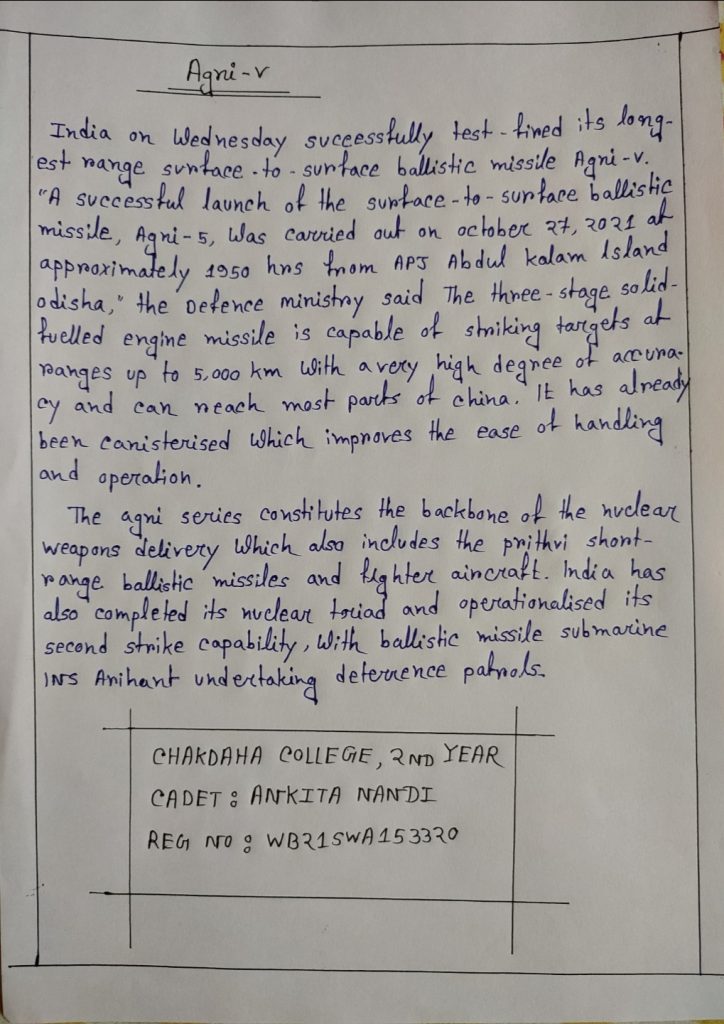 Agni-v
India on Wednesday successfully test-fired its long-
est range surface-to-surface ballistic missile Agni-v.
"A successful launch of the surface-to-surface ballistic
missile, Agni-5, Was carried out on october 27, 2021 at
approximately 1950 hrs from APJ Abdul kalam Island
odisha," the Defence ministry said The three-stage solid-
fuelled engine missile is capable of striking targets at
ranges up to 5,000 km With a very high degree of accura-
cy and can reach most parts of china. It has already
been canisterised Which improves the ease of handling
and operation.
The agni series constitutes the backbone of the nuclear
weapons delivery Which also includes the prithvi short-
range ballistic missiles and fighter aircraft. India has
also completed its nuclear toriad and operationalised its
second strike capability, With ballistic missile submarine
INS Arihant undertaking deterrence patrols.
CHAKDAHA COLLEGE, 2ND YEAR
CADET : ANKITA NANDI
REG NO : WB21SWA153320